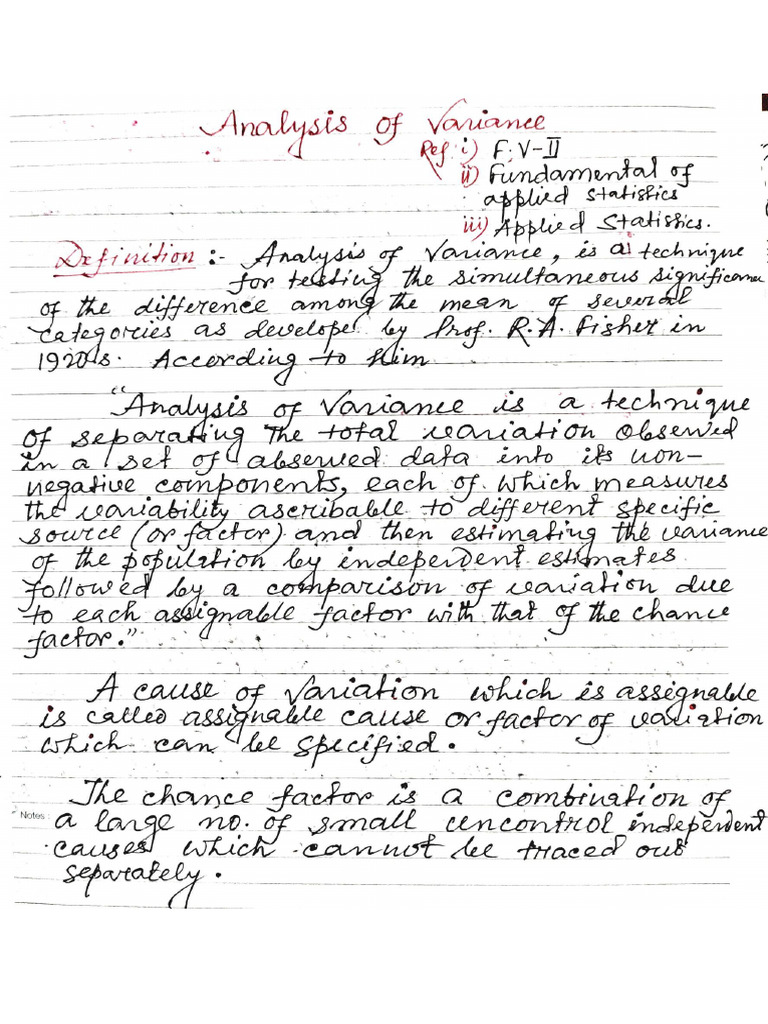 Analysis of Variance
Ref: i) F.V-II
ii) Fundamental of
applied statistics
iii) Applied Statistics.
Definition :- Analysis of Variance, is a technique
for testing the simultaneous significance
of the difference among the mean of several
categories as develope by Prof. R.A. Fisher in
1920's. According to him
"Analysis of Variance is a technique
of separating The total variation observed
in a set of observed data into its non-
negative components, each of which measures
the variability ascribable to different specific
source (or factor) and then estimating the variance
of the population by independent estimates
followed by a comparison of variation due
to each assignable factor with that of the chance
factor."
A cause of variation which is assignable
is called assignable cause or factor of variation
which can be specified.
The chance factor is a combination of
Notes :
a large no. of small uncontrol independent
causes which cannot be traced out
separately.